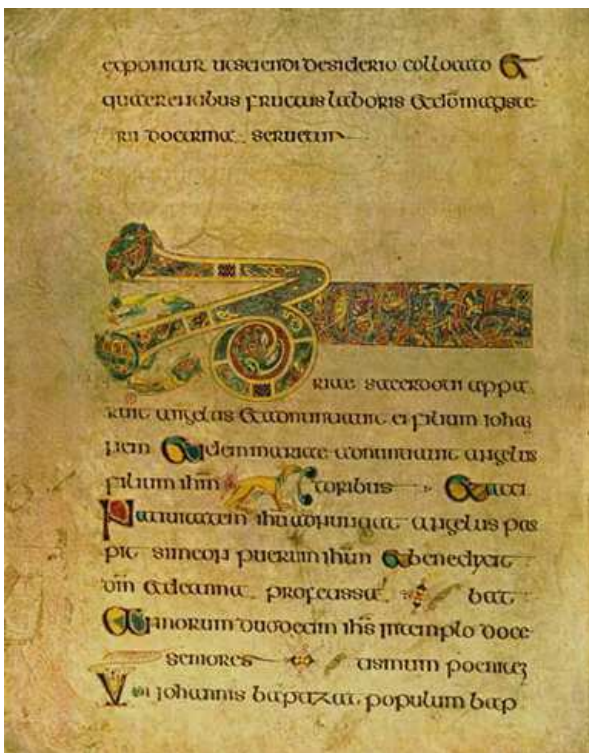 exponitur ut sciendi desiderio collocato &
quaerentibus fructus laboris & dōmagiste
rii doctrina servetur
Zacha
riae sacerdoti appa
ruit angelus & adnuntiavit ei filium ioha
nem & idem mariae adnuntiavit angelus
filium ihm toribus & acci
Nativitatem ihu adnuntiat angelus pas
pit simeon puerum ihm & benedixit
dm & de anna profetissa bat
Annorum duodecim ihs in templo doce
seniores tismum poenitaz
Ubi iohannis baptizat populum bap